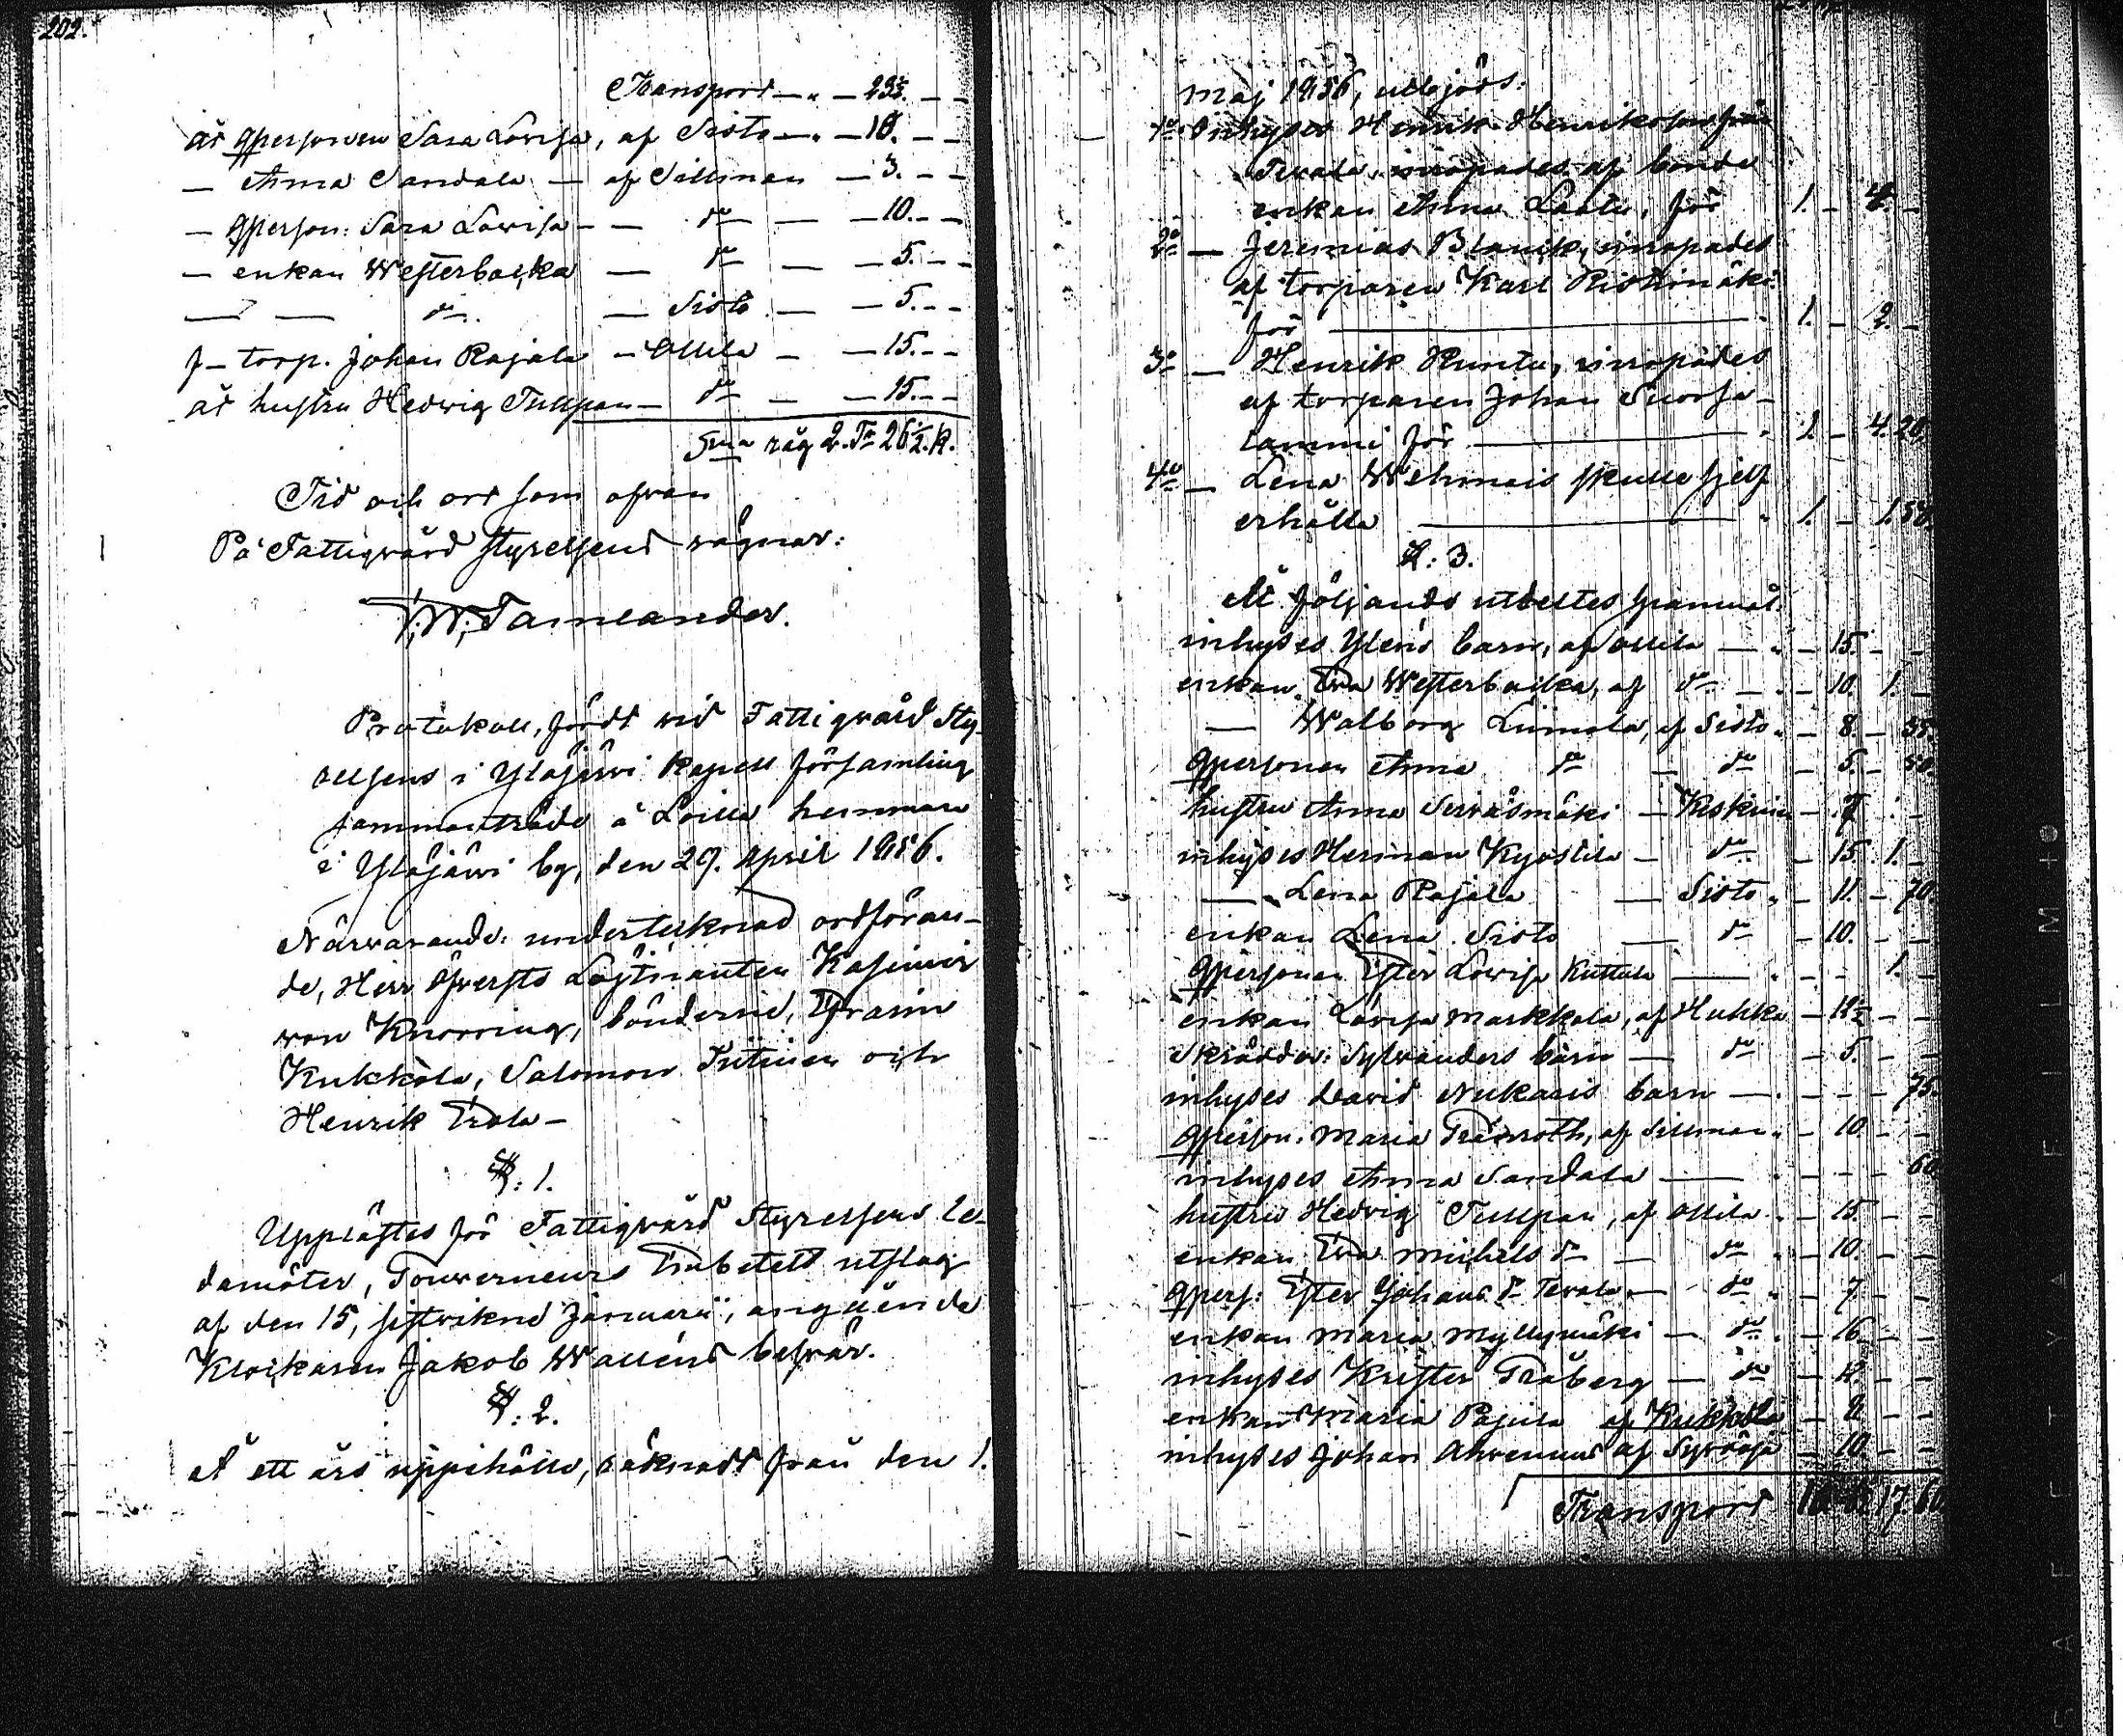 202.
Transport — " — 23½. — —
åt qpersonen Sara Lovisa, af Sisto — " — 10. — —
— Anna Sandala — af Sillman — 3. — —
— qperson: Sara Lovisa — — do — — 10. — —
— enkan Westerbacka — do — — 5. — —
— — do — Sisto — — 5. — —
f— torp. Johan Rajala — Ollila — — 15. — —
åt hustru Hedvig Tullpan — do — — 15. — —
Sma råg 2. Tr 26½. K.
Tid och ort som ofvan
På Fattigvård styrelsens vägnar:
Tamlander.
Protokoll, fördt vid Fattigvård Sty-
relsens i Ylöjärvi Kapell församling
sammanträde å Loilla hemman
i Ylöjärvi by, den 29. April 1856.
Närvarande: undertecknad ordföran-
de, Herr Öfverste Löjtnanten Kasimir
von Knorring, bönderne, Efraim
Kukkola, Salomon Intinen och
Henrik Erola —
§: 1.
Upplästes för Fattigvård Styrelsens le-
damöter, Gouverneurs Embetets utslag
af den 15, sistvikne Januarii, angående
Klockaren Jakob Walléns besvär.
§: 2.
Å ett års uppehälle, räknadt från den 1.
Maj 1856, utbjöds:
1o Inhyses Henrik Henriksson från
Terala, inropades af bonde
enkan Anna Laata, för 1. — 4. —
2o — Jeremias Blanck, inropades
af torparen Karl Ristimäki
för — 1. — 2. —
3o — Henrik Huntu, inropades
af torparen Johan Suorsa-
lammi för — " 1. — 4. 20.
4o — Lena Wehmais skulle sjelf
erhålla — " 1. — 1. 50.
§: 3.
Åt följande utdeltes spannmål
inhyses Yléns barn, af Ollila — " — 15. — —
enkan Eva Westerbacka, af do — " — 10. 1. —
— Walborg Liimola, af Sisto " — 8. — 35.
qpersonen Anna do — do — 5. — 50.
hustru Anna Serväsmäki — Keskinen — 7 —
inhyses Herman Kyöstilä — do — 15. 1. —
— Lena Rajala — Sisto " — 11. — 70.
enkan Lena Sisto — do — 10. — —
qpersonen Ester Lovisa Kuttula — " — — 1. —
enkan Lovisa Markkola, af Huhka — 12½ — —
Skräddar: Sylvanders barn — do — 5. — —
inhyses David Nukaris barn — " — — — 75.
qperson: Maria Granroth, af Sillman " — 10. — —
inhyses Anna Sandala — " — — — 60
hustru Hedvig Tullpan, af Ollila — " — 15. — —
enkan Eva Michels dr — do " — 10. — —
qpers: Ester Johans dr Terala — do " — 7. — —
enkan Maria Myllymäki — do " — 16. — —
inhyses Krister Gråberg — do — 12. — —
enkan Maria Pajula af Kukkola — 2 — —
inhyses Johan Ahrenius af Syväoja — 10. — —
Transport 17. 60